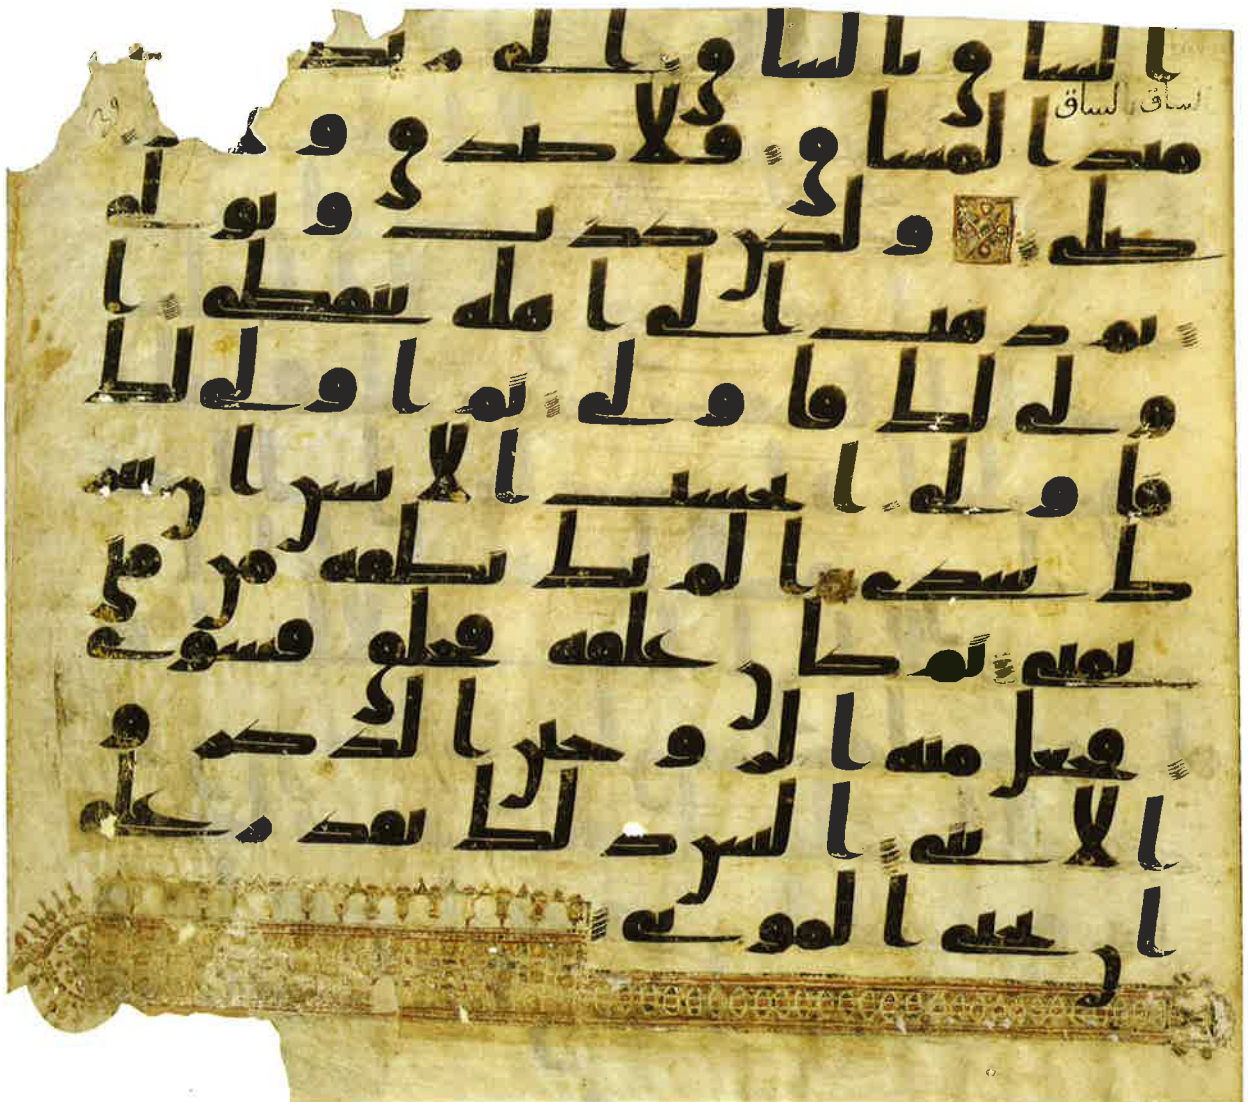 الساق بالساق الى ربك
الساق لساق
مئذ المساق فلا صدق ولا
صلى ولكن كذب وتولى
ثم ذهب الى اهله يتمطى ا
ولى لك فاولى ثم اولى لك
فاولى ايحسب الانسن ان يتر
ك سدى الم يك نطفة من منى
يمنى ثم كان علقة فخلق فسوى
فجعل منه الزوجين الذكر و
الانثى اليس ذلك بقدر على
ان يحيى الموتى